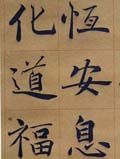 恆安息
化道福